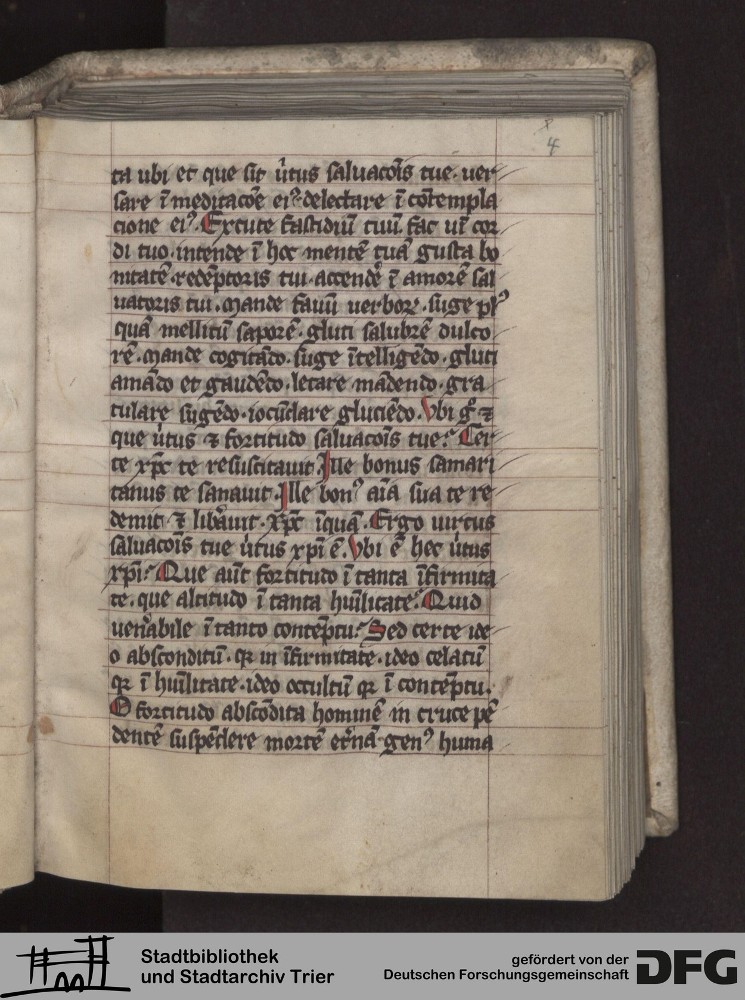 x
4
ta ubi et que sit ůtus saluacōis tue. uer
sare ī meditacōe eiꝰ. delectare ī cōtempla
cione eiꝰ. Excute fastidiū tuū. fac uī cor
di tuo. intende ī hoc mentē tuā. gusta bo
nitatē redēptoris tui. accendē ī amorē sal
uatoris tui. Mande fauū uerboꝝ. suge plꝰ
quā mellitū saporē. gluti salubrē dulco
rē. Mande cogitādo. suge ītelligēdo. gluti
amādo et gaudēdo. letare mādendo. gra
tulare sugēdo. iocūdare gluciēdo. Vbi gͦ ⁊
que ůtus ⁊ fortitudo saluacōis tue? Cer
te xp̄c te resuscitauit. Ille bonus samari
tanus te sanauit. Ille bonꝰ aīa sua te re
demit ⁊ lib̄auit. Xp̄c īquā. Ergo uirtus
saluacōis tue ůtus xp̄i ē. Vbi ē hec ůtus
xp̄i? Que aūt fortitudo ī tanta īfirmita
te. que altitudo ī tanta hūilitate? Quid
uen̄abile ī tanto contēptu? Sed certe ide
o absconditū. qꝛ in īfirmitate. ideo celatū
qꝛ ī hūilitate. ideo occultū qꝛ ī contēptu.
O fortitudo abscōdita hominē in cruce pē
dentē suspēdere mortē et̄nā genꝰ huma
Stadtbibliothek
und Stadtarchiv Trier
gefördert von der
Deutschen Forschungsgemeinschaft
DFG